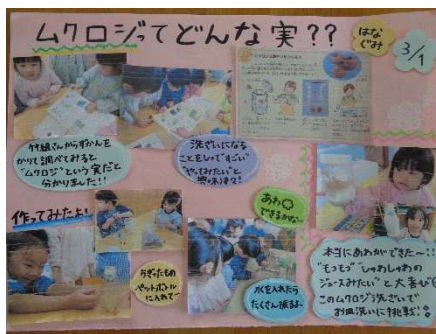 ムクロジってどんな実??
はな
ぐみ
3/1
竹組さんからずかんを
かりて調べてみると
"ムクロジ"という実だと
分かりました!!
洗ざいになる
ことをしって"すごい"
"やってみたい"と
興味津々!
作ってみたよ!
あわ
できるかな〜
わったもの
ペットボトル
に入れて〜
水を入れたら
たくさん振るよ〜
本当にあわができた〜!!
"もこもこ""しゅわしゅわの
ジュースみたい"と大喜び
このムクロジ洗ざいで
お皿洗いに挑戦!